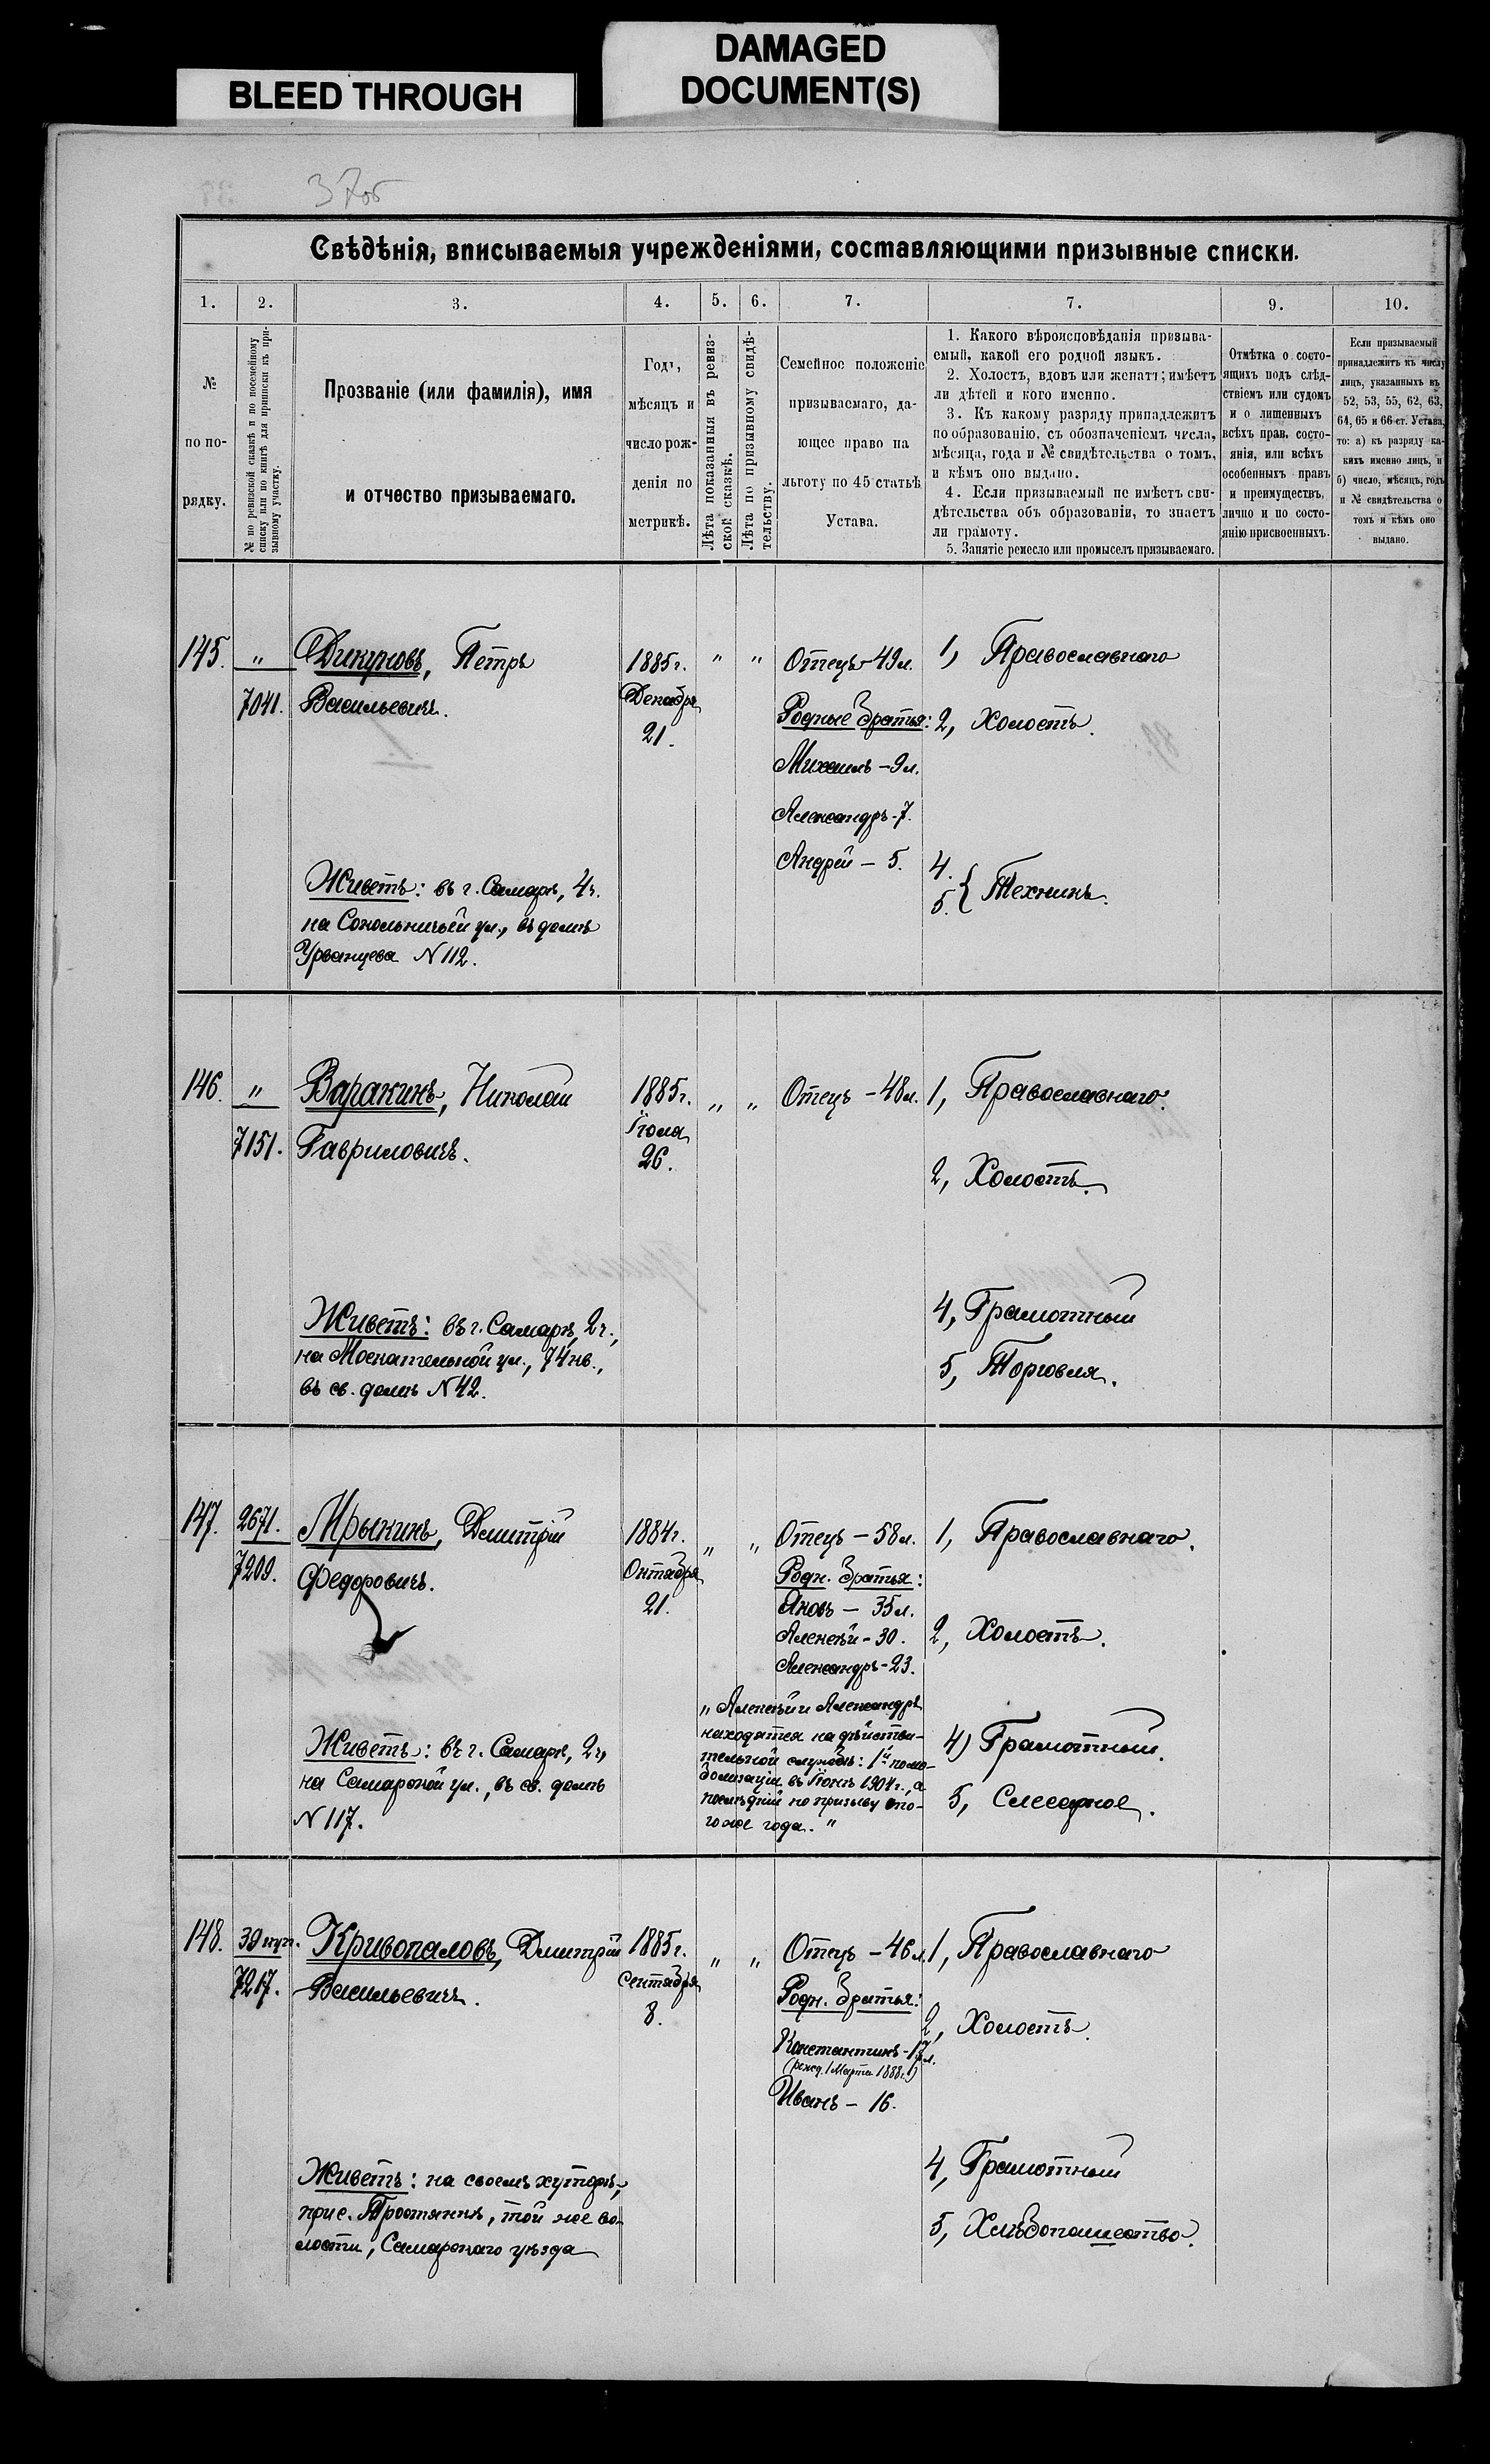 BLEED THROUGH
DAMAGED
DOCUMENT(S)
37об
Свѣдѣнія, вписываемыя учрежденіями, составляющими призывные списки.
1. 2. 3. 4. 5. 6. 7. 7. 9. 10.
№
по по-
рядку.
№ по ревизской сказкѣ и по посемейному
списку или по книгѣ для приписки къ при-
зывному участку.
Прозваніе (или фамилія), имя
и отчество призываемаго.
Годъ,
мѣсяцъ и
число рож-
денія по
метрикѣ.
Лѣта показанныя въ ревиз-
ской сказкѣ.
Лѣта по призывному свидѣ-
тельству.
Семейное положеніе
призываемаго, да-
ющее право на
льготу по 45 статьѣ
Устава.
1. Какого вѣроисповѣданія призыва-
емый, какой его родной языкъ.
2. Холостъ, вдовъ или женатъ; имѣетъ
ли дѣтей и кого именно.
3. Къ какому разряду принадлежитъ
по образованію, съ обозначеніемъ числа,
мѣсяца, года и № свидѣтельства о томъ,
и кѣмъ оно выдано.
4. Если призываемый не имѣетъ сви-
дѣтельства объ образованіи, то знаетъ
ли грамоту.
5. Занятіе ремесло или промыселъ призываемаго.
Отмѣтка о состо-
ящихъ подъ слѣд-
ствіемъ или судомъ
и о лишенныхъ
всѣхъ прав. состо-
янія, или всѣхъ
особенныхъ правъ
и преимуществъ,
лично и по состо-
янію присвоенныхъ.
Если призываемый
принадлежитъ къ числу
лицъ, указанныхъ въ
52, 53, 55, 62, 63,
64, 65 и 66 ст. Устава,
то: а) къ разряду ка-
кихъ именно лицъ, и
б) число, мѣсяцъ, годъ
и № свидѣтельства о
томъ и кѣмъ оно
выдано.
145. "
7041.
Дикуновъ, Петръ
Васильевичъ.
Живетъ: въ г. Самарѣ, 4ч.
на Сокольничьей ул., въ домѣ
Урванцева N 112.
1885г.
Декабря
21.
" "
Отецъ - 49л.
Родные братья:
Михаилъ - 9л.
Александръ - 7.
Андрей - 5.
1, Православнаго
2, Холостъ.
4.
5. { Техникъ.
146. "
7151.
Варакинъ, Николай
Гавриловичъ.
Живетъ: въ г. Самарѣ, 2ч.,
на Москательной ул., 74 кв.,
въ св. домѣ N 42.
1885г.
Іюля
26.
" "
Отецъ - 48л.
1, Православнаго.
2, Холостъ.
4, Грамотный
5, Торговля.
147. 2671.
7209.
Мрыкинъ, Дмитрій
Федоровичъ.
Живетъ: въ г. Самарѣ, 2ч,
на Самарской ул., въ св. домѣ
N 117.
1884г.
Октября
21.
" "
Отецъ - 58л.
Родн. братья:
Яковъ - 35л.
Алексѣй - 30.
Александръ - 23.
" Алексѣй и Александръ
находятся на дѣйстви-
тельной службѣ: 1й по мо-
билизаціи въ Іюнѣ 1904г., а
послѣдній по призыву этo-
го же года. "
1, Православнаго.
2, Холостъ.
4) Грамотный.
5, Слесарное.
148. 39 куп.
7217.
Кривопаловъ, Дмитрій
Васильевичъ.
Живетъ: на своемъ хуторѣ,
при с. Тростянкѣ, той же во-
лости, Самарскаго уѣзда
1885г.
Сентября
8.
" "
Отецъ - 46л
Родн. братья:
Константинъ - 17л.
(рожд. 1 Марта 1888г.)
Иванъ - 16.
1, Православнаго
2, Холостъ.
4, Грамотный
5, Хлѣбопашество.